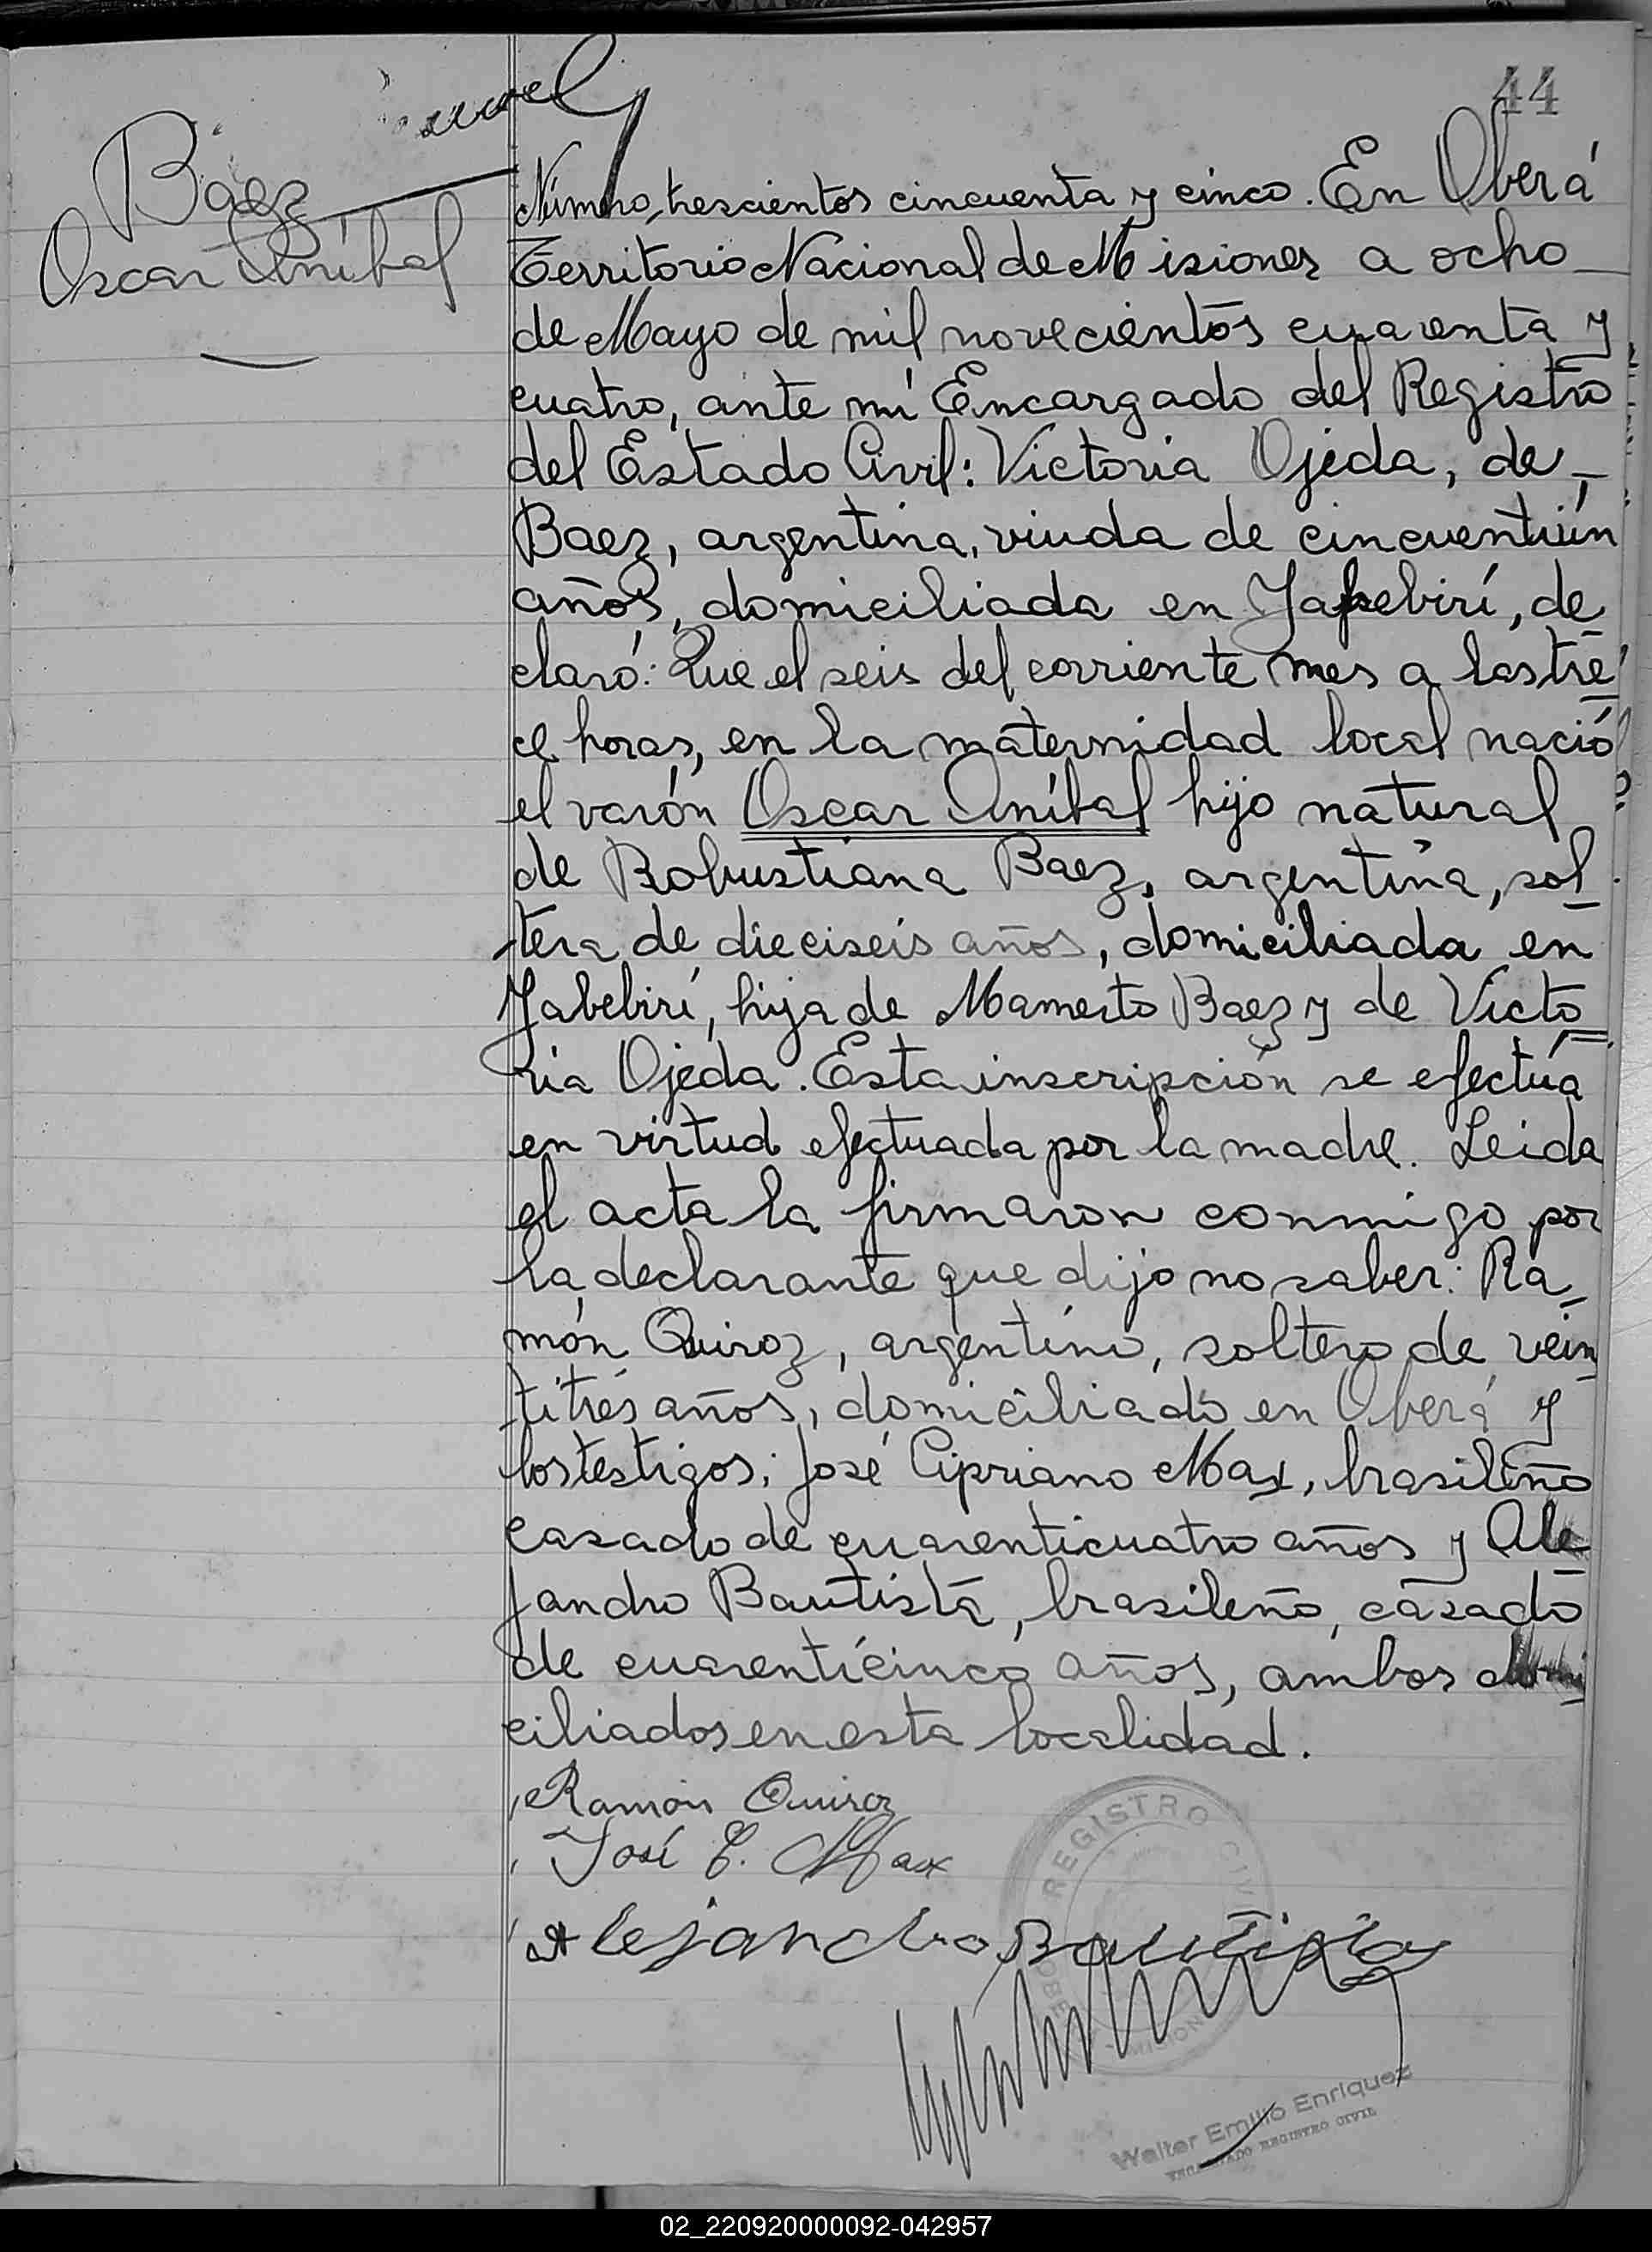 44
Baez
Oscar Aníbal
Número, trescientos cincuenta y cinco. En Oberá
Territorio Nacional de Misiones a ocho
de Mayo de mil novecientos cuarenta y
cuatro, ante mí Encargado del Registro
del Estado Civil: Victoria Ojeda, de
Baez, argentina, viuda de cincuentiún
años, domiciliada en Yabebirí, de
claró: Que el seis del corriente mes a las tre
ce horas, en la maternidad local nació
el varón Oscar Aníbal hijo natural
de Robustiana Baez, argentina, sol
tera de dieciseis años, domiciliada en
Yabebirí, hija de Mamerto Baez y de Victo
ria Ojeda. Esta inscripción se efectúa
en virtud efectuada por la madre. Leida
el acta la firmaron conmigo por
la declarante que dijo no saber: Ra-
món Quiroz, argentino, soltero de vein
titrés años, domiciliado en Oberá y
los testigos; José Cipriano Max, brasileño
casado de cuarenticuatro años y Ale
jandro Bautista, brasileño, casado
de cuarenticinco años, ambos domi
ciliados en esta localidad.
Ramón Quiroz
José C. Max
Alejandro Bautista
REGISTRO CIVIL
OBERA
MISIONES
Walter Emilio Enriquez
ENCARGADO REGISTRO CIVIL
02_220920000092-042957